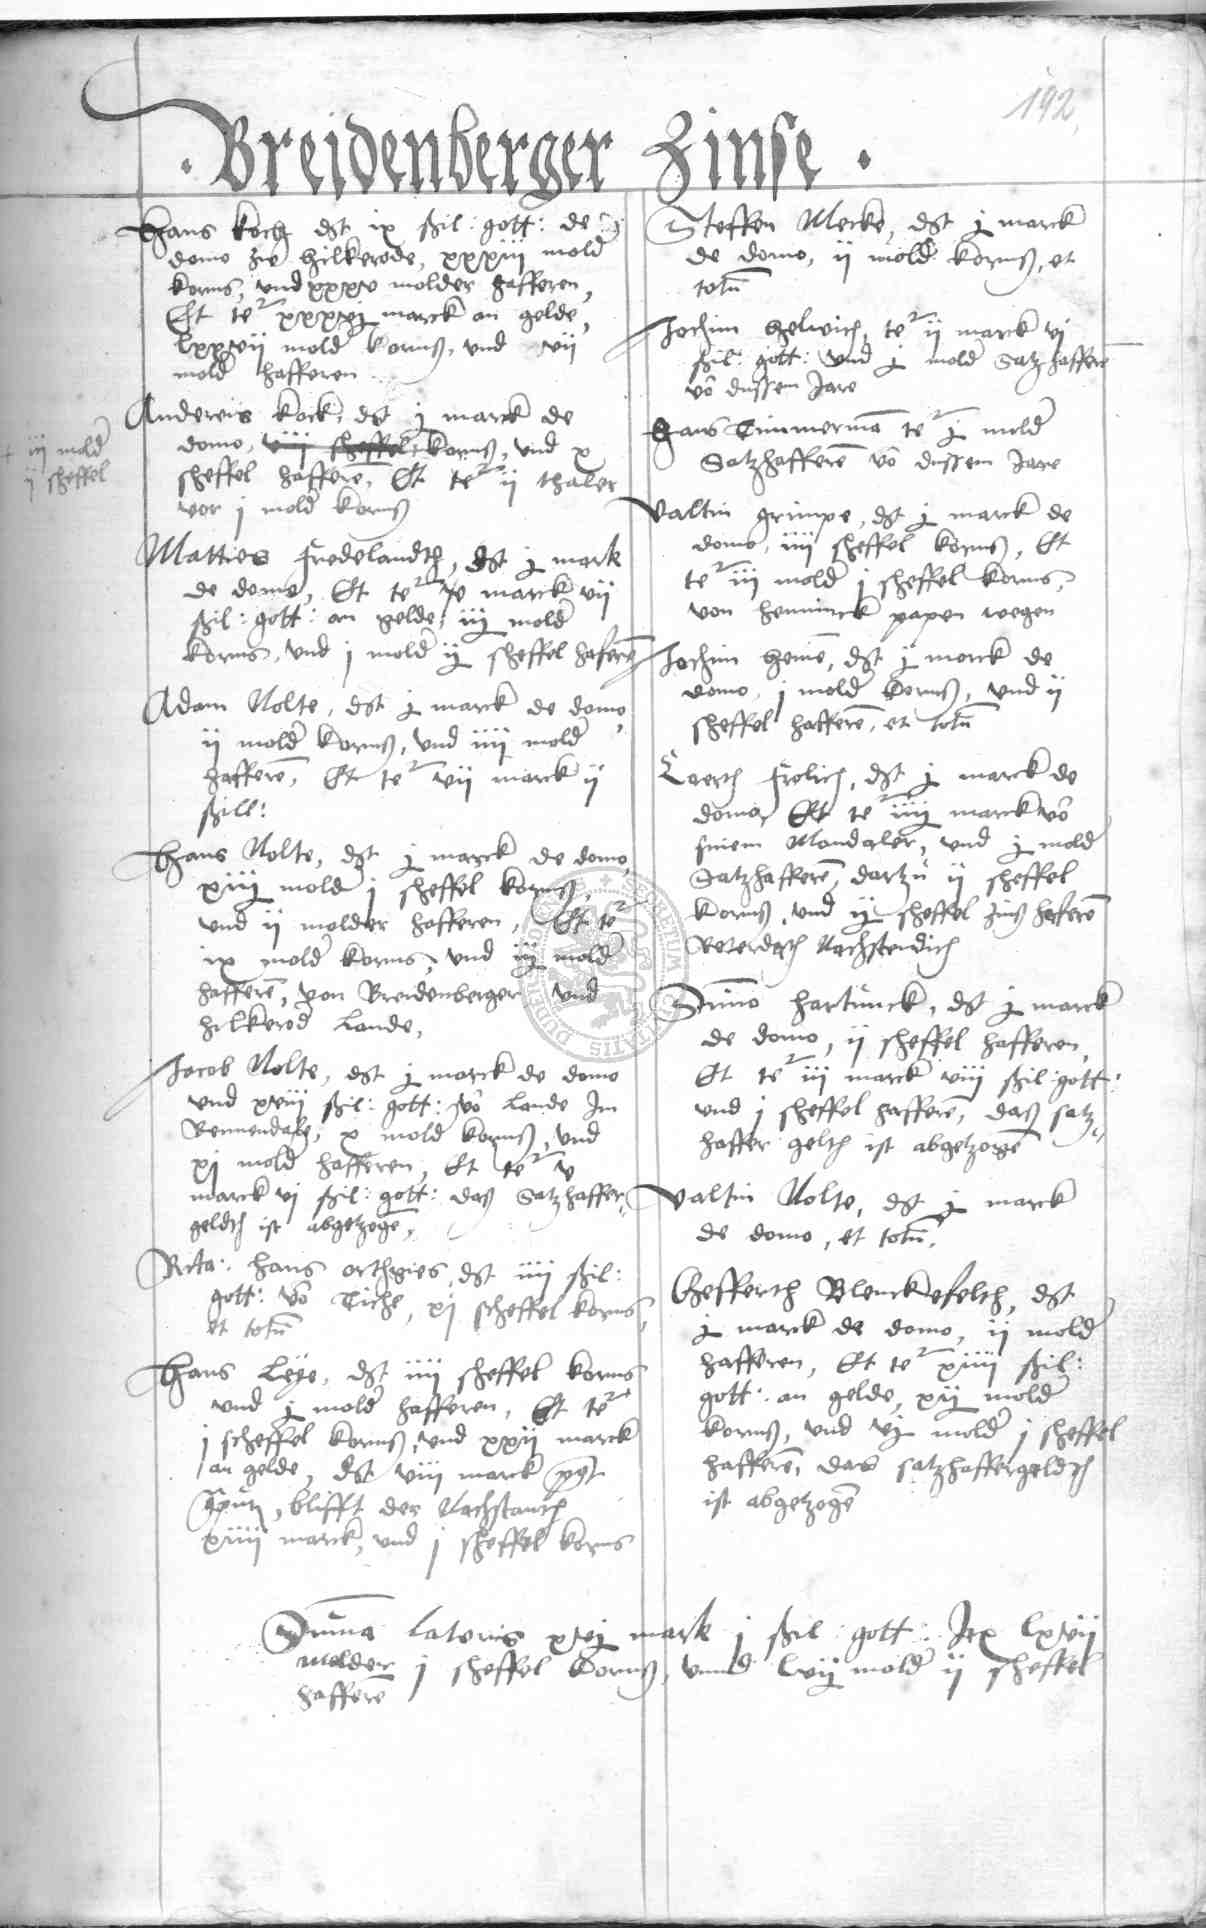 192
Breidenberger Zinse
Hans Koch dst ix ßil: gott: de
domo zw Hilkerode, xxxiij mold
korns, und xxxv molder hafferen,
Et te marck an gelde,
mold korns, und vij
mold hafferen
Andereis Kock, dst j marck de
domo, viij sheffel korns, und x
sheffel hafferē, Et te ij thaler
vor j mold korns
iij mold
ij sheffel
Matties Fredelandth, dst j mark
de domo, Et te marck vij
ßil: gott: an gelde, mold
korns, und j mold sheffel haferē
Adam Nolte, dst j marck de domo,
ij mold korns, und iiij mold
hafferē, Et te vij marck ij
ßill:
Hans Nolte, dst j marck de domo,
mold j sheffel korns,
und ij molder hafferen, Et te
ix mold korns, und mold
hafferē, von Breidenberger und
Hilkerod Lande,
Jacob Nolte, dst j marck de domo
und xviij ßil: gott: vō Lande Im
x mold korns, und
xj mold hafferen, Et te v
marck vj ßil: gott: das Satzhaffer
geldth ist abgetzogē,
Rcta: Hans Orthgies dst iiij ßil:
gott: vō Tiche, xj scheffel korns,
et totū
Hans Leye, dst iiij sheffel korns
und j mold hafferen, Et te
j scheffel korns, und xxij marck
an gelde, dst viij marck
blifft der Nachstandth
xiiij marck, und j sheffel korns
Steffen Mecke, dst j marck
de domo, ij mold korns, et
totū
Jochim Helwich, te ij marck vj
ßil: gott: und j mold Satzhafferē
vō dussem Jare
Hans Timmermā te j mold
Satzhafferē vō dussem Jare
Valtin Grimpe, dst j marck de
domo, iiij sheffel korns, Et
te iij mold j sheffel korns,
von Henninck Papen wegen
Jochim Henne, dst j marck de
domo, j mold korns, und ij
sheffel hafferē, et totū
Frolich, dst j marck de
domo, Et te marck vō
sinem und j mold
Satzhafferē, dartzu ij sheffel
korns, und ij sheffel zins hafferē
Nachstendich
Simō Hartunck, dst j marck
de domo, ij sheffel hafferen,
Et te iij marck viij ßil: gott:
und j sheffel hafferē, das satz
haffer gelth ist abgetzogē
Valtin Nolte, dst j marck
de domo, et totū,
Gefferth Blenckefelth, dst
j marck de domo, ij mold
hafferen, Et te xiiij ßil:
gott: an gelde, xij mold
korns, und mold j sheffel
hafferē, das satzhaffergeldth
ist abgetzogē
Summa Lateris mark j ßil: gott:
molder j sheffel korns, unnd mold ij sheffel
hafferē